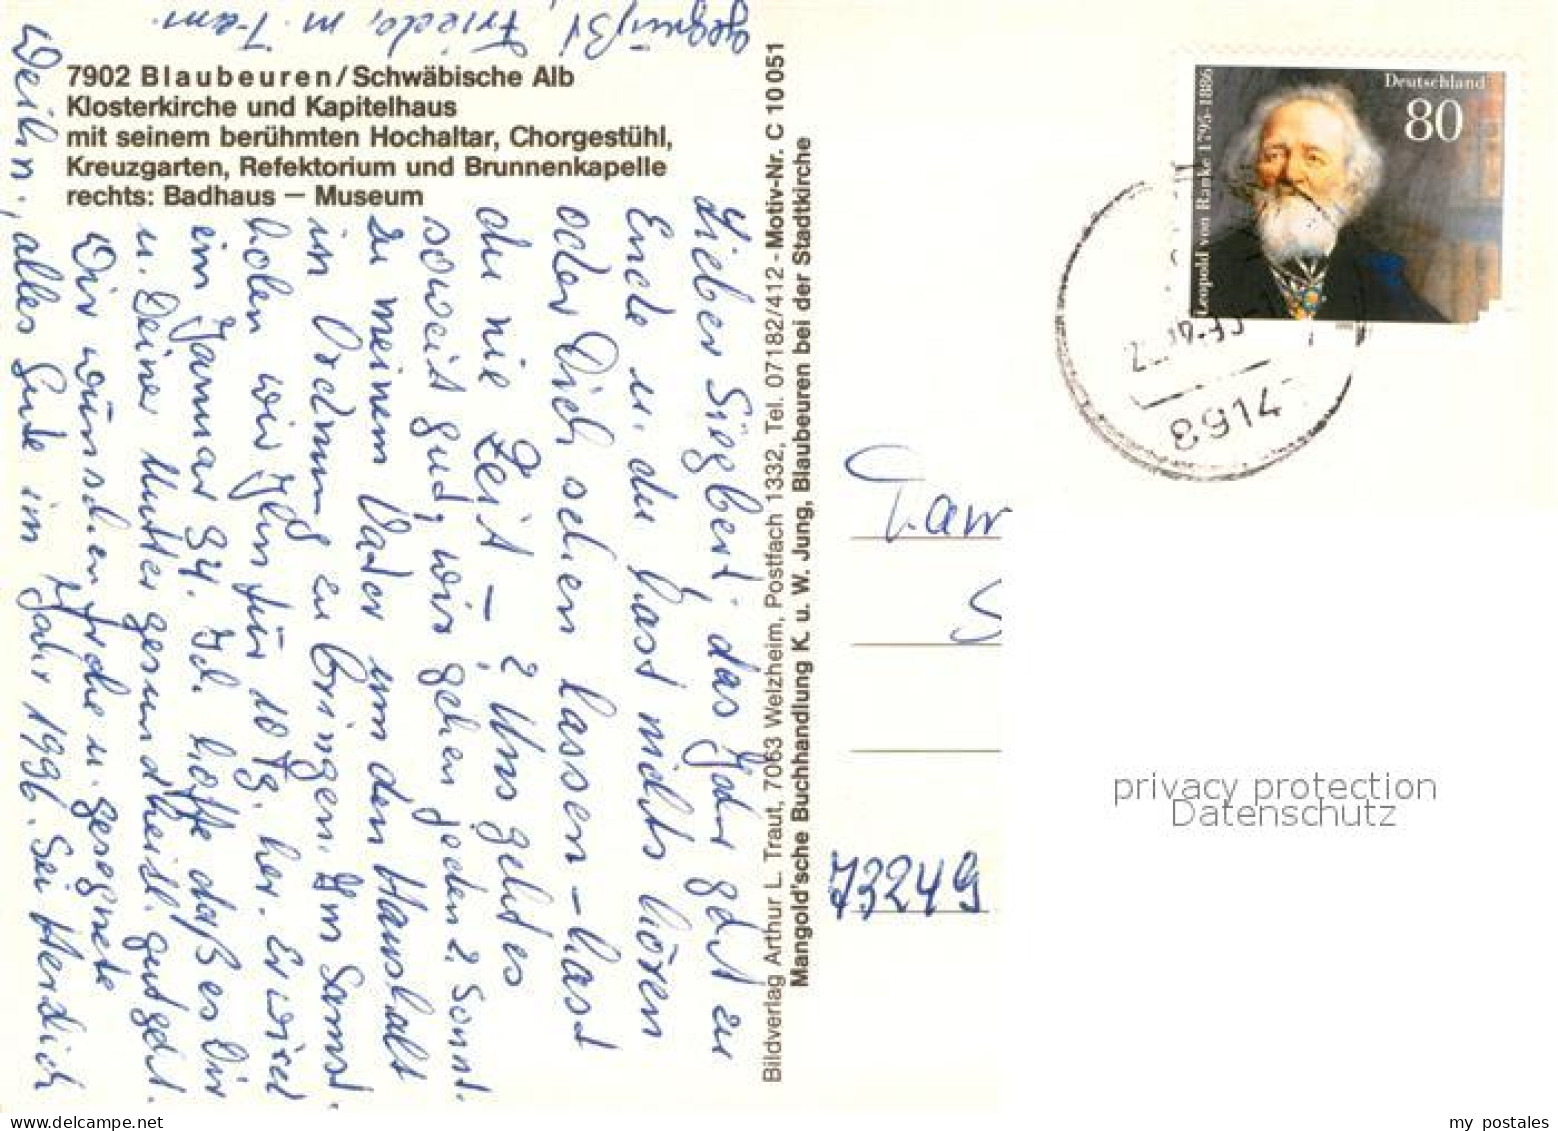 7902 Blaubeuren/Schwäbische Alb
Klosterkirche und Kapitelhaus
mit seinem berühmten Hochaltar, Chorgestühl,
Kreuzgarten, Refektorium und Brunnenkapelle
rechts: Badhaus — Museum
Lieber Sigbert, das Jahr geht zu
Ende u. du hast nichts hören
oder Dich sehen lassen – hast
du nie Zeit – ? Uns geht es
soweit gut, wir gehen jeden 2. Sonnt.
zu meinem Vater um den Haushalt
in Ordnung zu bringen. Im Samst.
holen wir Ihn für 10 Tg. her. Er wird
im Januar 94. Ich hoffe daß es Dir
u. Deiner Mutter gesundheitl. gut geht.
Wir wünschen frohe u. gesegnete
Weihn., alles Gute im Jahr 1996. Sei Herzlich
gegrüßt Friede, m. Fam.
Bildverlag Arthur L. Traut, 7063 Welzheim, Postfach 1332, Tel. 07182/412 - Motiv-Nr. C 10051
Mangold'sche Buchhandlung K. u. W. Jung, Blaubeuren bei der Stadtkirche
Deutschland
80
Leopold von Ranke 1795-1886
8914
Fam
S
73249
privacy protection
Datenschutz
my postales